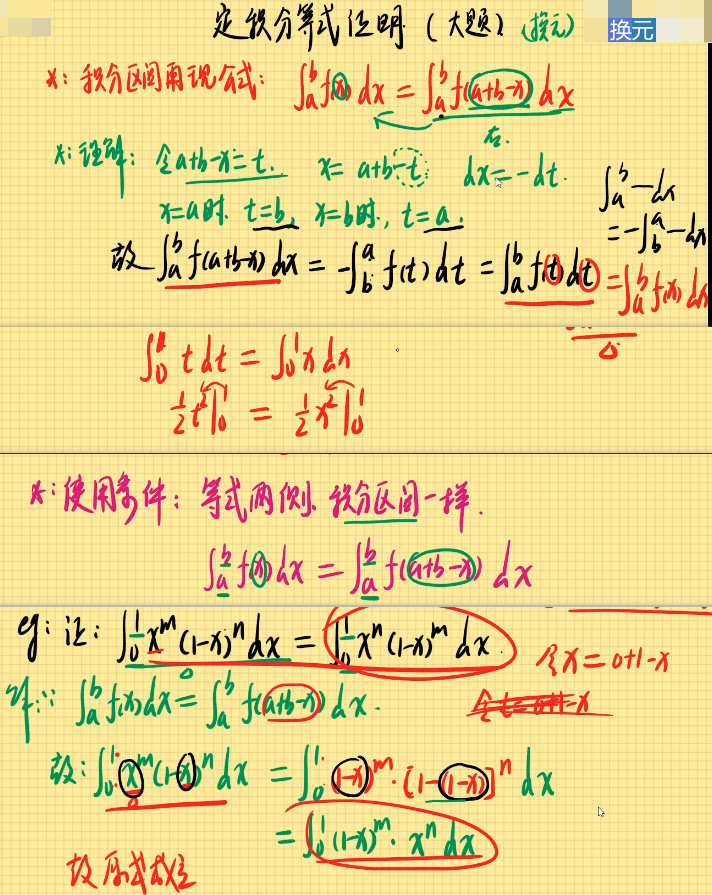 定积分等式证明 (大题) (换元)
换元
*: 积分区间再现公式: ∫_a^b f(x) dx = ∫_a^b f(a+b-x) dx
右.
*: 证解: 令a+b-x=t. x= a+b-t. dx=-dt.
x=a时. t=b, x=b时, t=a.
∫_a^b —dx
=-∫_b^a —dx
故 ∫_a^b f(a+b-x) dx = -∫_b^a f(t) dt = ∫_a^b f(t) dt = ∫_a^b f(x) dx
∫_0^1 t dt = ∫_0^1 x dx
½t²|_0^1 = ½x²|_0^1
*: 使用条件: 等式两侧. 积分区间一样.
∫_a^b f(x) dx = ∫_a^b f(a+b-x) dx
eg: 证: ∫_0^1 x^m (1-x)^n dx = ∫_0^1 x^n (1-x)^m dx.
令x=0+1-x
令t=0+1-x
∵ ∫_a^b f(x) dx = ∫_a^b f(a+b-x) dx.
故: ∫_0^1 x^m (1-x)^n dx = ∫_0^1 (1-x)^m · [1-(1-x)]^n dx
= ∫_0^1 (1-x)^m · x^n dx
故原式成立